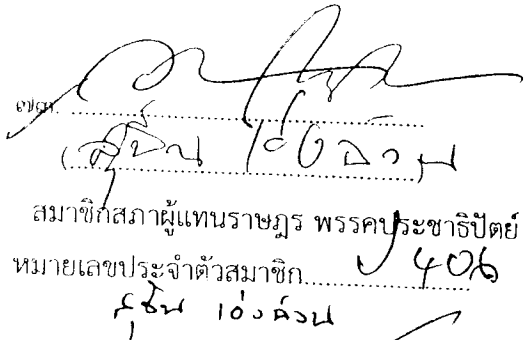 ๗๓.
(สุวิน เอ่งฉ้วน)
สมาชิกสภาผู้แทนราษฎร พรรคประชาธิปัตย์
หมายเลขประจำตัวสมาชิก 406
เอ่งฉ้วน